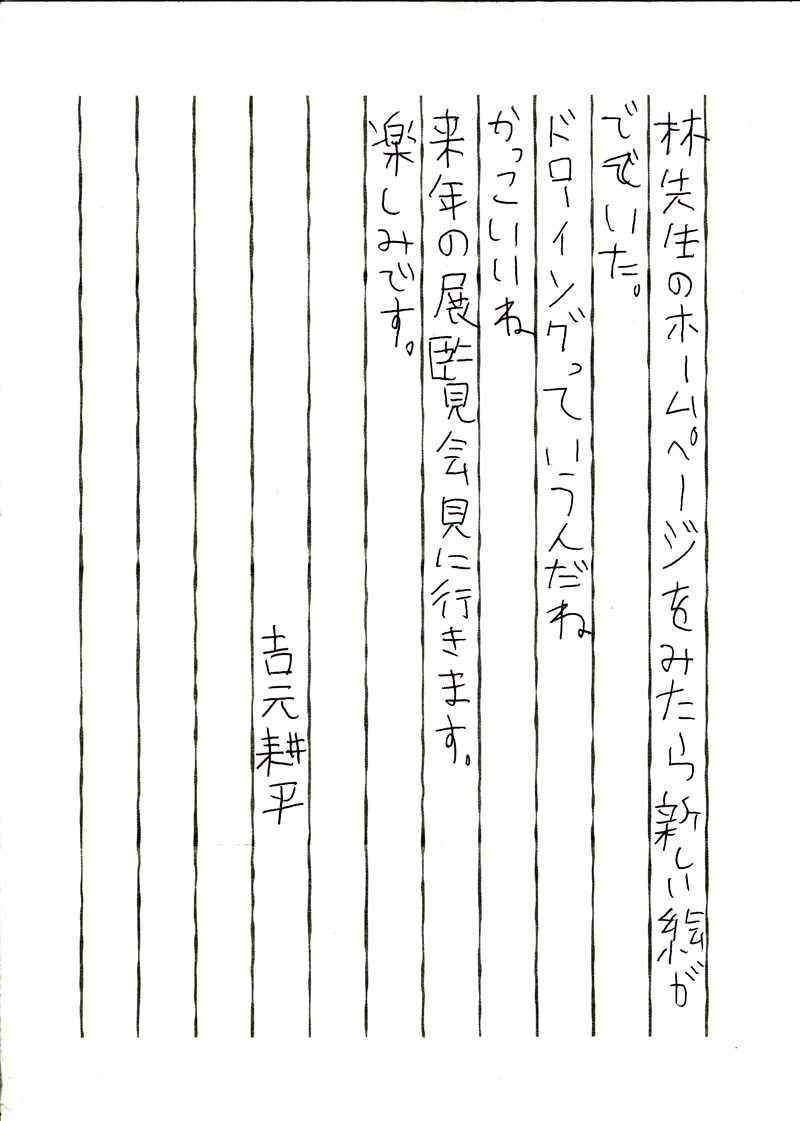 林先生のホームページをみたら新しい絵が
ででいた。
ドローイングっていうんだね
かっこいいね
来年の展覧会見に行きます。
楽しみです。
吉元耕平